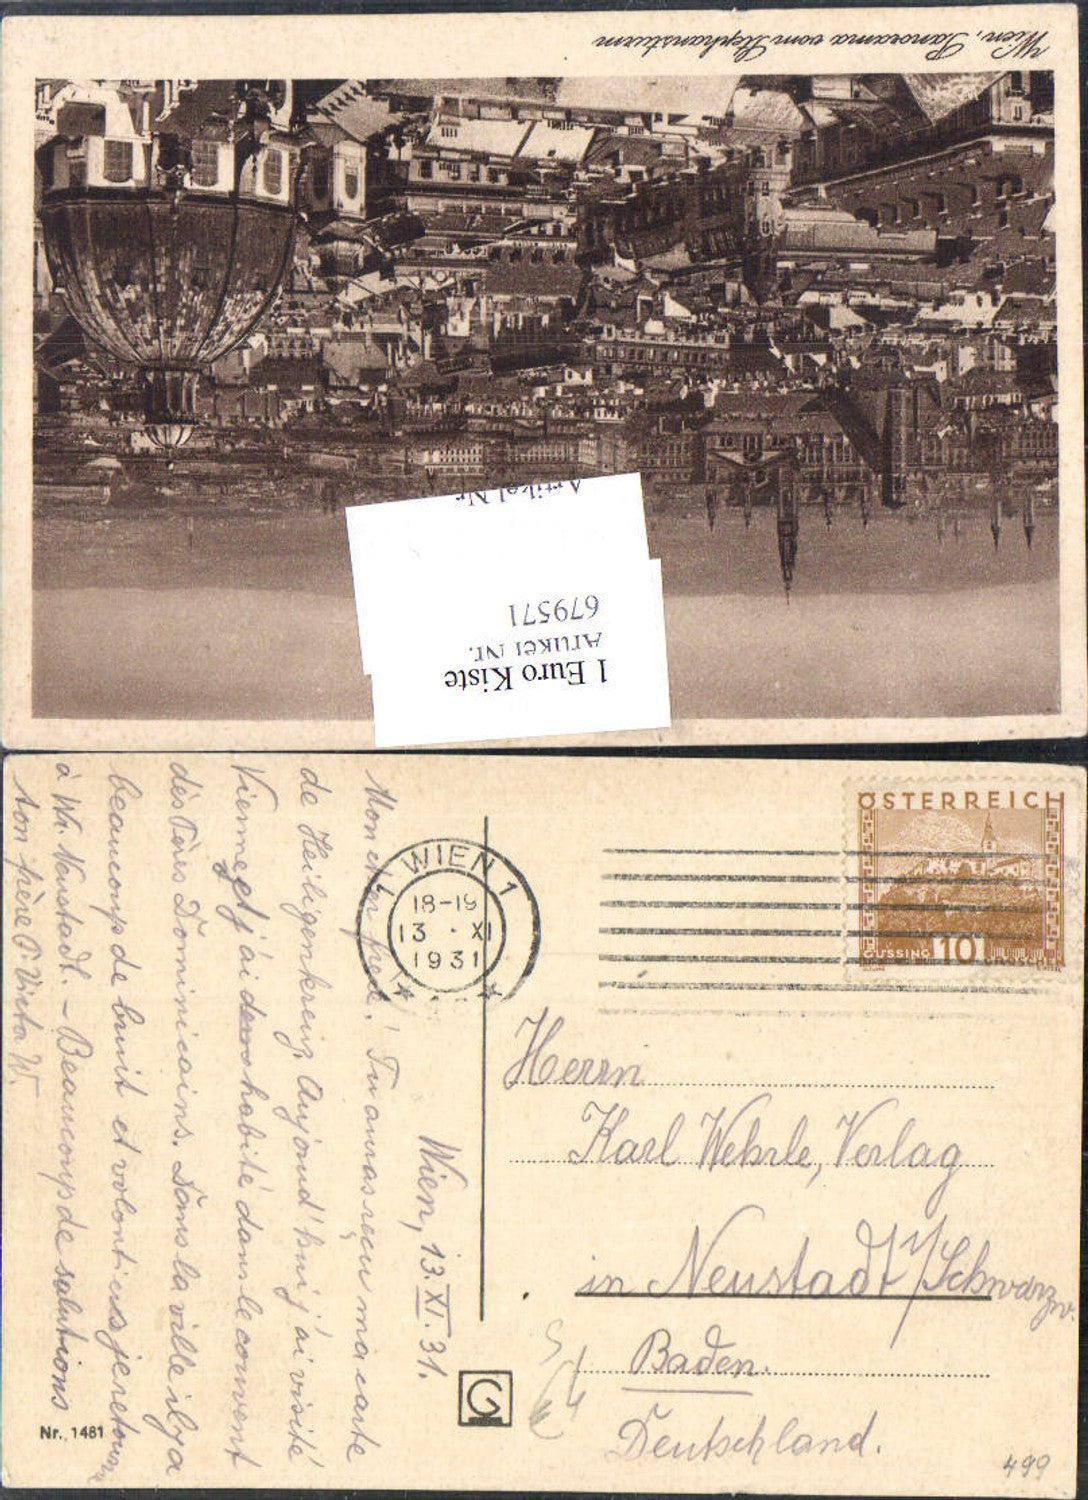 Wien, Panorama vom Stephansturm
Artikel Nr.
679571
Artikel Nr.
1 Euro Kiste
ÖSTERREICH
GÜSSING 10 GROSCHEN
1 WIEN 1
18-19
13 · XI
1931
Wien, 13. XI. 31.
Mon cher frère! Tu auras reçu ma carte
de Heiligenkreuz. Aujourd'hui j'ai visité
Vienne et j'ai habité dans le couvent
des Pères Dominicains. Dans la ville il y a
beaucoup de bruit et volontiers je retourne
à Wr. Neustadt. – Beaucoup de salutions
ton frère P. W.
Herrn
Karl Wehrle, Verlag
in Neustadt / Schwarzw.
Baden.
Deutschland.
Nr. 1481
G
499